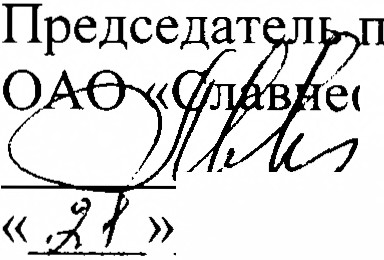 Председатель п
ОАО «Славнес
« 21 »